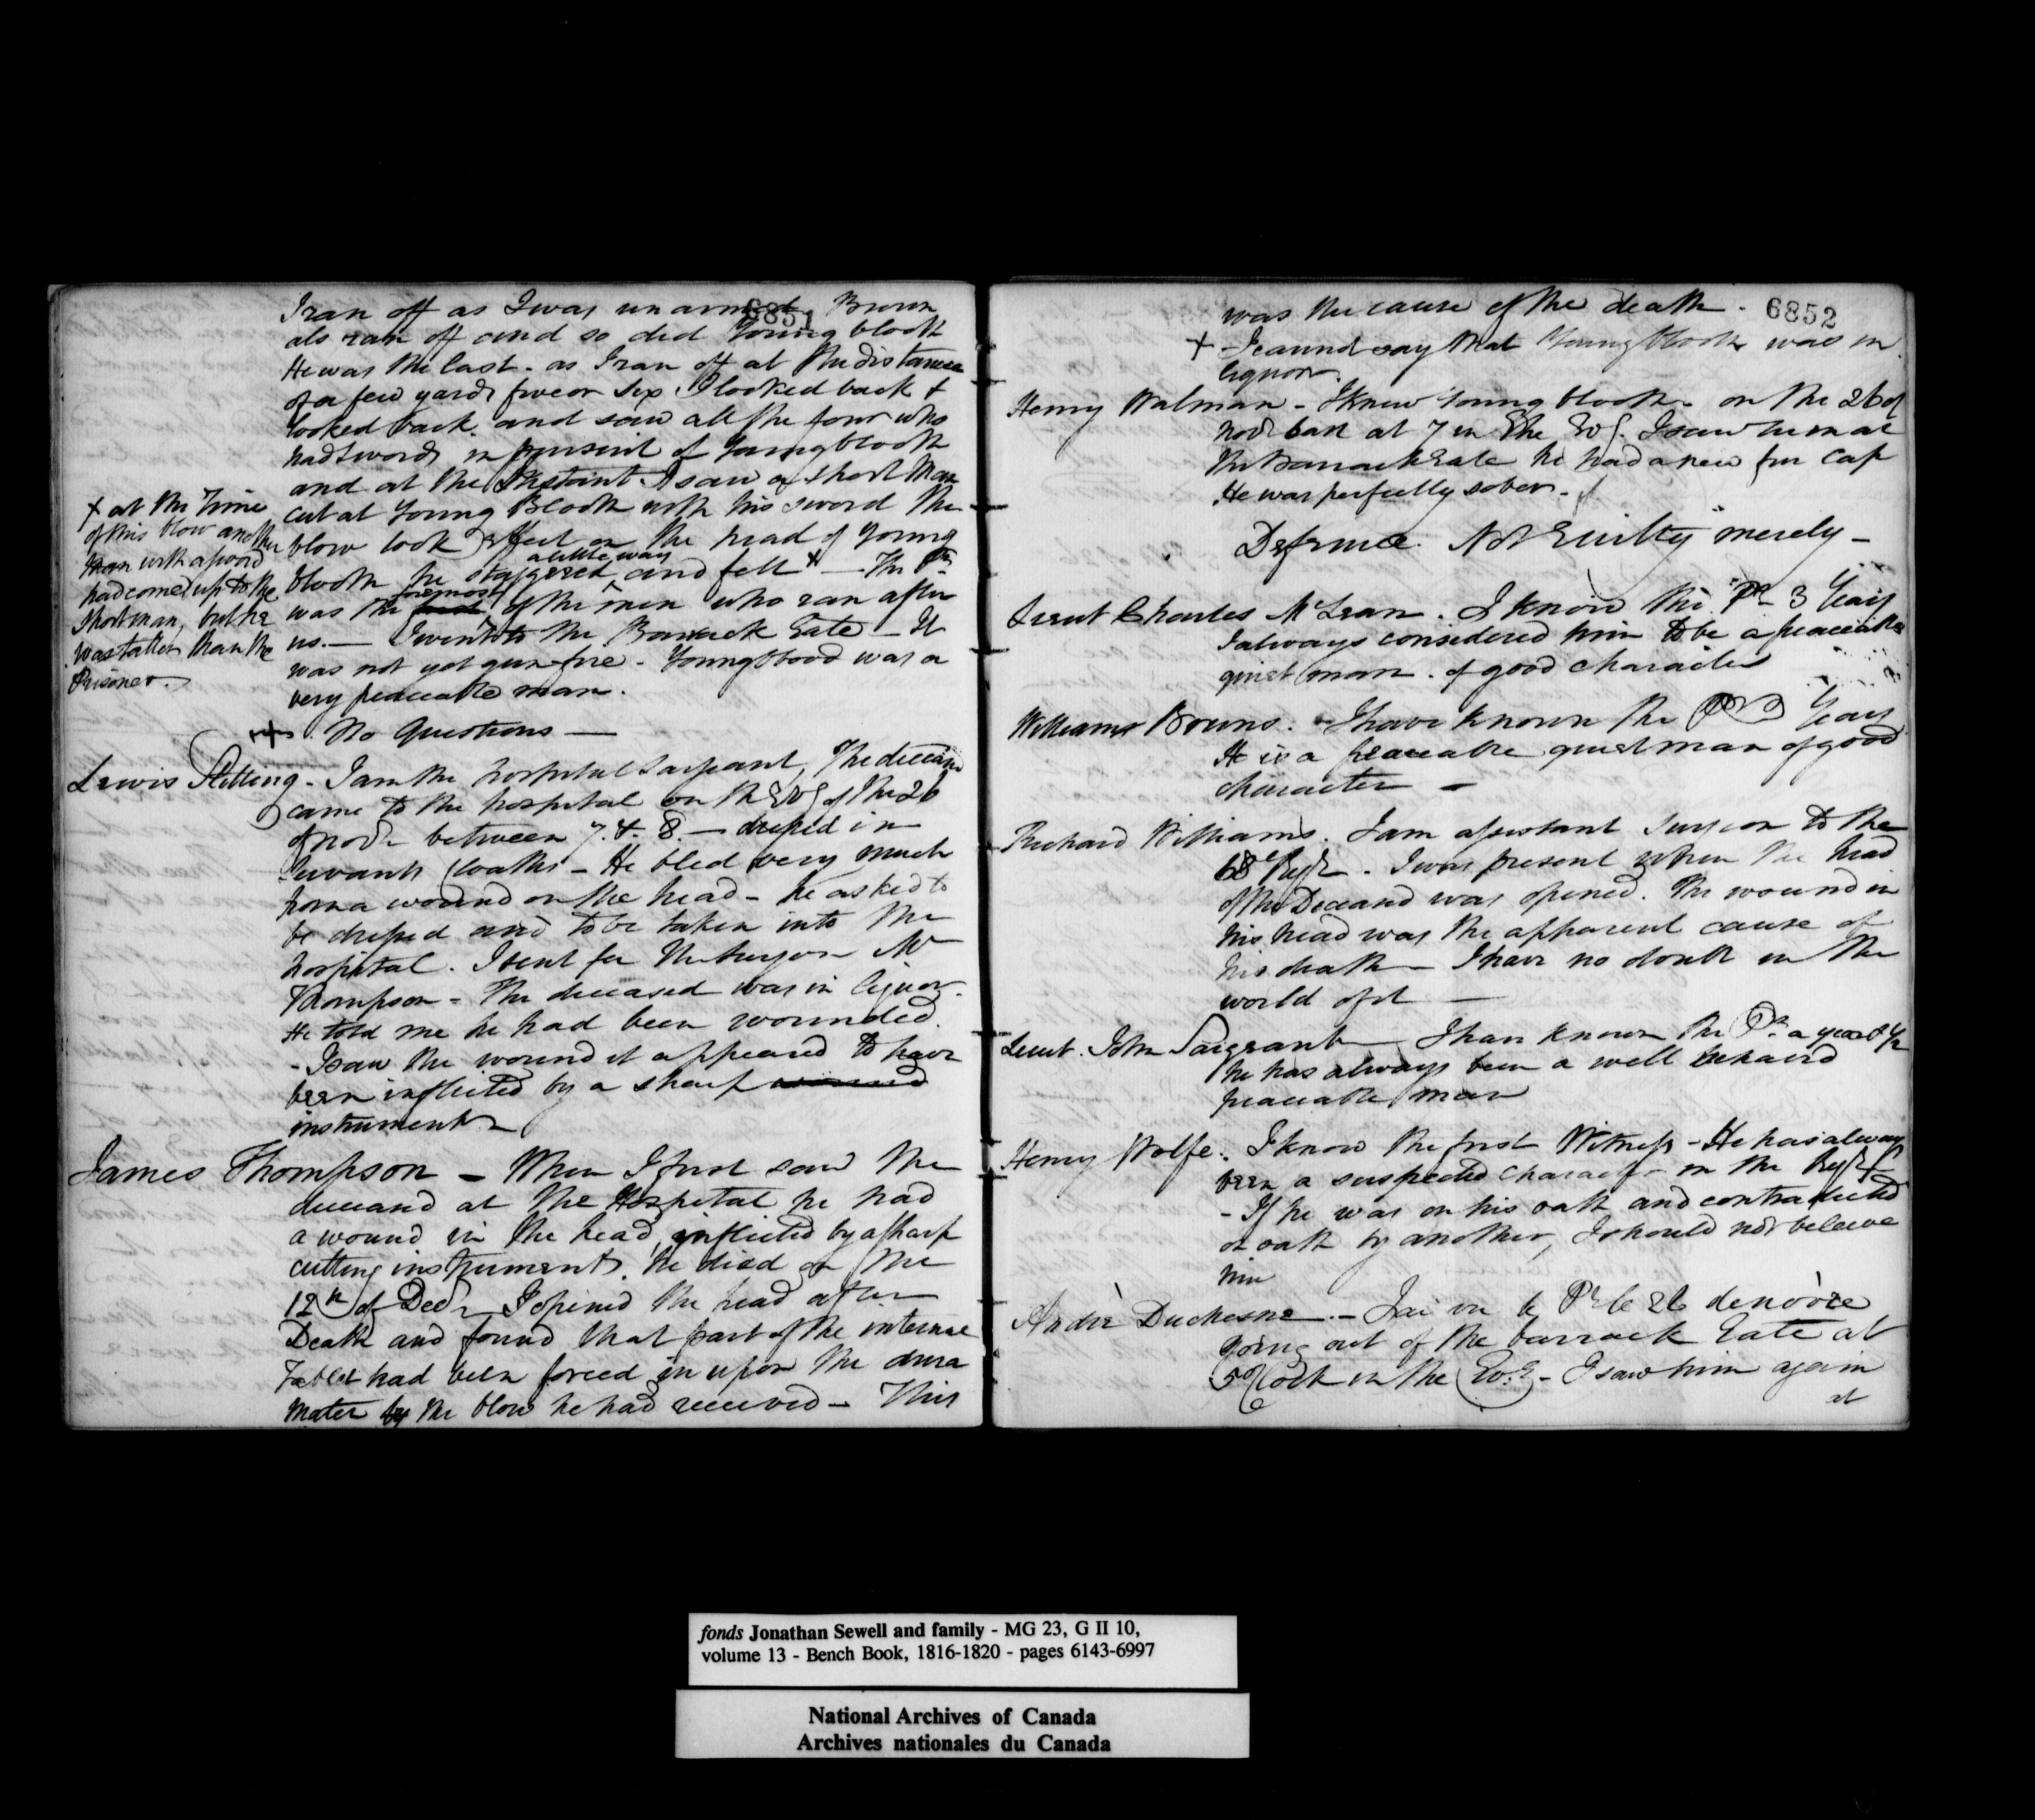 6851
I ran off as I was unarmed Brown
als ran off and so did Youngblooth
He was the last - as I ran off at the distance
of a few yards five or six I looked back +
looked back and saw all the four who
had swords in pursuit of Youngblooth
and at the Instant I saw a short Man
cut at Young Blooth with his sword the
blow took effect on the head of Young
blooth he staggered a little way and fell + — The Pr
was the first foremost of the men who ran after
us. — I went to the Barrack Gate — It
was not yet gun fire - Youngblood was a
very peaceable man.
+ at the Time
of this blow another
Man with a sword
had come up to the
Short man, but he
was taller than the
Prisoner.
No Questions —
Lewis Stilling - I am the hospital Sarjeant, The deceasd
came to the hospital on the Evg of the 26
of Novr between 7. & 8. — dressed in
servants Cloaths - He bled very much
from a wound on the head - he asked to
be dressed and to be taken into the
hospital. I sent for the Surgeon Mr
Thompson - The deceased was in liquor.
He told me he had been wounded.
- I saw the wound it appeared to have
been inflicted by a sharp wound
instrument
James Thompson - When I first saw the
deceased at the Hospital he had
a wound in the head, inflicted by a sharp
cutting instrument. He died on the
12th of Decr I opened the head after
Death and found that part of the internal
Table had been forced in upon the dura
Mater by the blow he had received - This
6852
was the cause of the death.
+ I cannot say that Youngblooth was in
liquor.
Henry Walman - I knew Youngblooth - on the 26 of
Novr last at 7 in the Evg. I saw him at
the Barrack Gate he had a new fur Cap
He was perfectly sober -
Defence. Not Guilty" merely -
Lieut Charles McLean. I know the Pr 3 Years
I always considered him to be a peaceable
quiet man. of good character
Williams Bruno. I have known the Pr 3 Years
He is a peaceable quiet man of good
character -
Richard Williams. I am assistant Surgeon to the
68 Regt. I was present when the head
of the Deceased was opened. The wound in
his head was the apparent cause of
his death - I have no doubt in the
world of it —
Lieut. John Sargeant — I have known the Pr a year & 1/2
he has always been a well behaved
peaceable man
Henry Wolfe. I know the first Witness - He has always
been a suspected character in the Regt
- If he was on his oath and contradicted
on oath by another, I should not believe
him
Andrè Duchesne. - Jai vu le Pr le 26 denovre
going out of the barrack Gate at
5 oClock in the Evg - I saw him again
at
fonds Jonathan Sewell and family - MG 23, G II 10,
volume 13 - Bench Book, 1816-1820 - pages 6143-6997
National Archives of Canada
Archives nationales du Canada